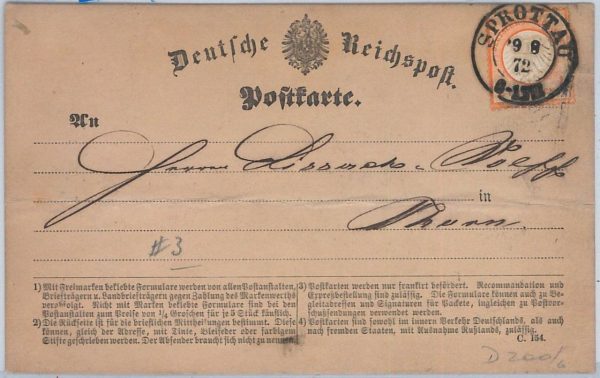 Deutsche Reichspost.
SPROTTAU
9 8
72
Postkarte.
An
Herrn Lissack & Wolff
in
Thorn.
#3
1) Mit Freimarken beklebte Formulare werden von allen Postanstalten,
Briefträgern u. Landbriefträgern gegen Zahlung des Markenwerths
verabfolgt. Nicht mit Marken beklebte Formulare sind bei den
Postanstalten zum Preise von ¼ Groschen für je 5 Stück käuflich.
2) Die Rückseite ist für die brieflichen Mittheilungen bestimmt. Diese
können, gleich der Adresse, mit Tinte, Bleifeder oder farbigem
Stifte geschrieben werden. Der Absender braucht sich nicht zu nennen.
3) Postkarten werden nur frankirt befördert. Recommandation und
Expreßbestellung sind zulässig. Die Formulare können auch zu Be-
gleitadressen und Signaturen für Packete, ingleichen zu Postvor-
schußsendungen verwendet werden.
4) Postkarten sind sowohl im innern Verkehr Deutschlands, als auch
nach fremden Staaten, mit Ausnahme Rußlands, zulässig.
C. 154.